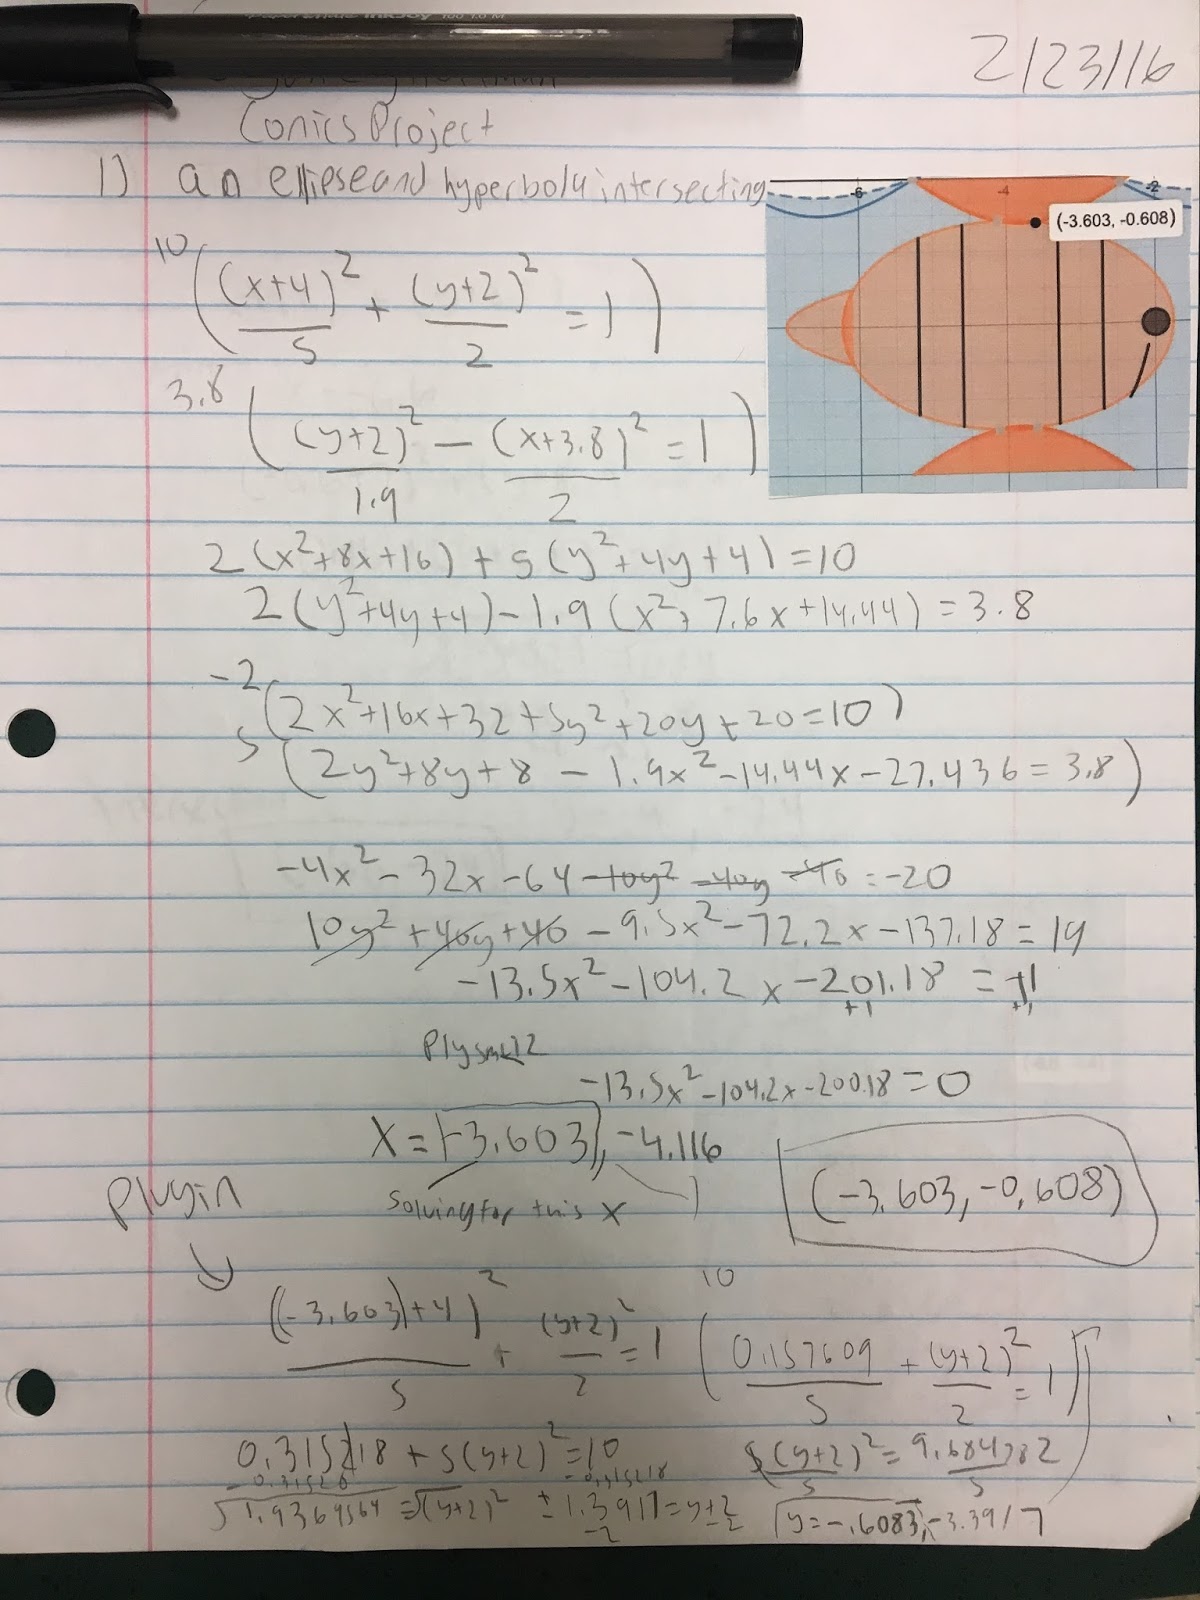 2/23/16
Conics Project
1) an ellipse and hyperbola intersecting
-6 -4 -2
(-3.603, -0.608)
10((x+4)²/5 + (y+2)²/2 = 1)
3.8((y+2)²/1.9 - (x+3.8)²/2 = 1)
2(x²+8x+16) + 5(y²+4y+4) = 10
2(y²+4y+4) - 1.9(x²+7.6x+14.44) = 3.8
-2(2x²+16x+32+5y²+20y+20=10)
5(2y²+8y+8 - 1.9x²-14.44x-27.436 = 3.8)
-4x²-32x-64-10y²-40y-40=-20
10y²+40y+40-9.5x²-72.2x-137.18=19
-13.5x²-104.2x-201.18=-1
+1 +1
-13.5x²-104.2x-200.18=0
x = -3.603, -4.116
solving for this x
(-3.603, -0.608)
Plug in
((-3.603)+4)²/5 + (y+2)²/2 = 1
10(0.157609/5 + (y+2)²/2 = 1)
0.315218 + 5(y+2)² = 10
-0.315218
5(y+2)²/5 = 9.684782/5
√1.9369564 = √(y+2)²
±1.3917 = y+2
-2 -2
y = -.6083, -3.3917